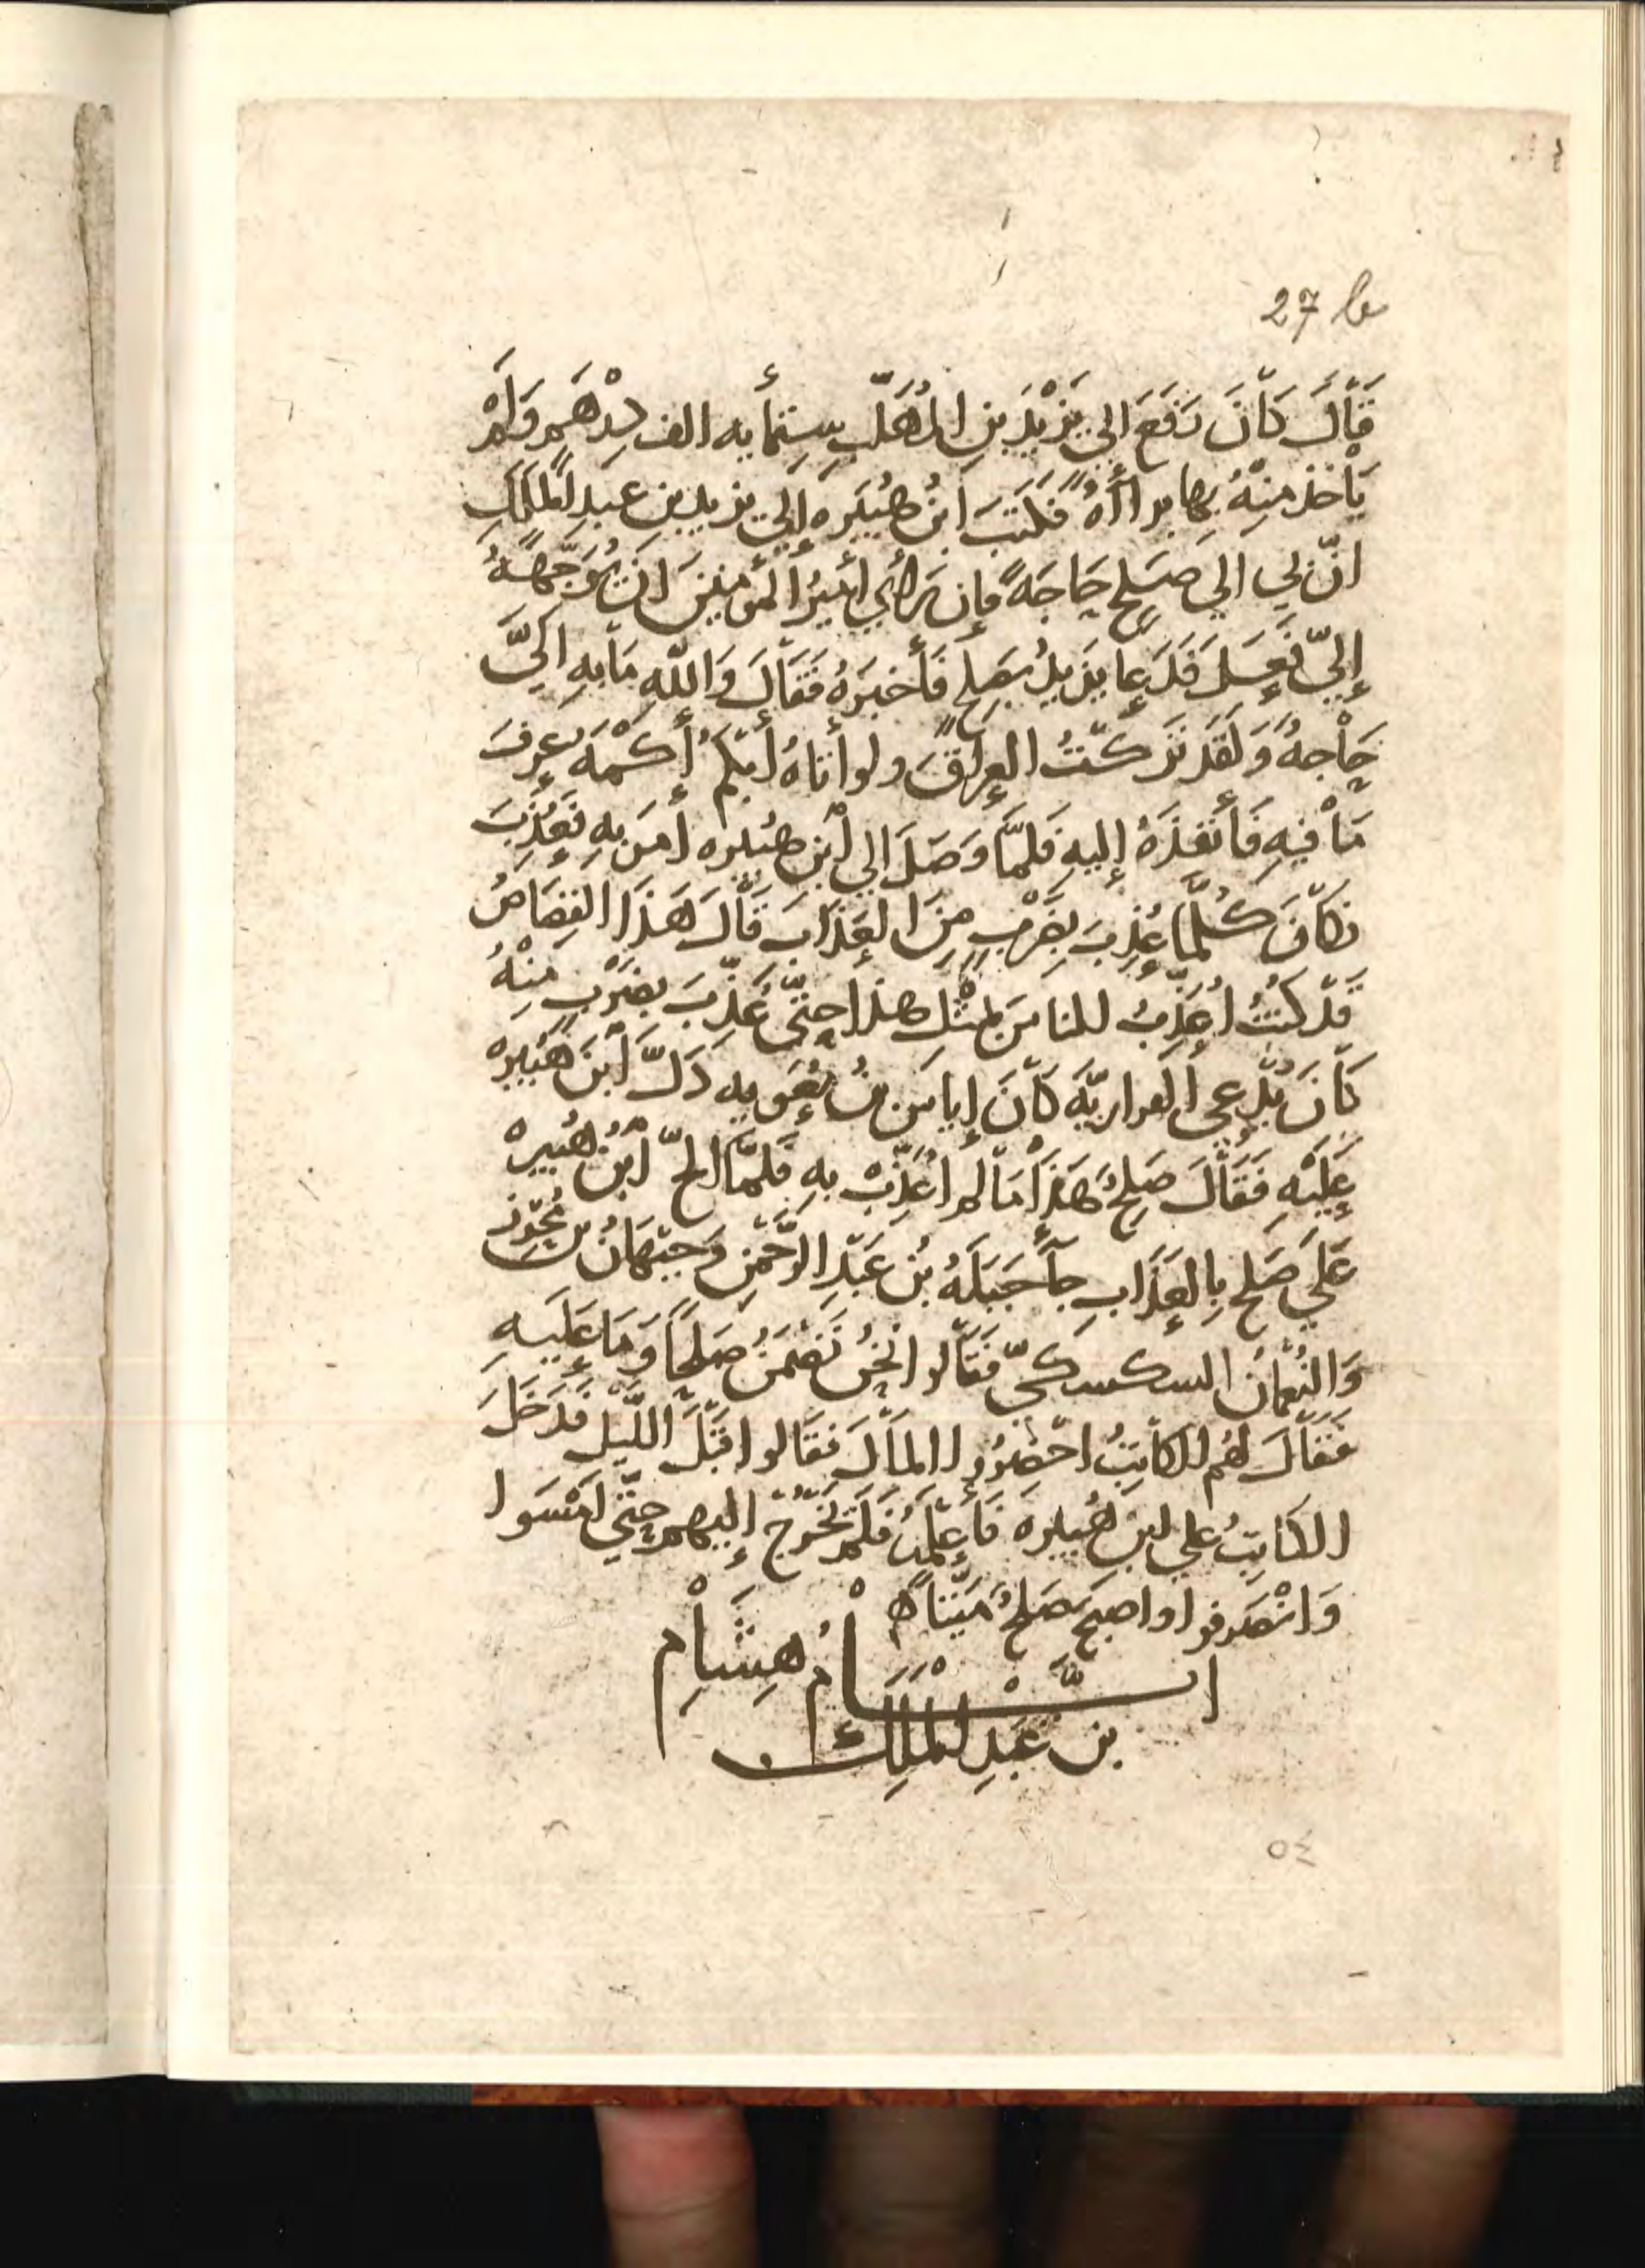 27 b
قَالَ كَانَ دَفَعَ الي يَزِيْدَ بنِ المُهَلَّبِ سِتمأيه الف دِرْهَمٍ وَلَمْ
يَأْخذ مِنْهُ بِها براأةً فَكَتَبَ ابنُ هُبَيَره إلي يزيد بن عبدِ المَلِكِ
انّ لي الي صَلحٍ حَاجَةً فإن رَأي أمِيرُ المُؤمِنينَ ان يُوَجِّهَهُ
إليّ فَعِلَ فَدَعا يزيدُ بصَلحٍ فَأَخبَرَهُ فَقَالَ وَاللّهِ مَا بِهِ الَيَّ
حَاْجهٌ وَلَقَد تَرَكتُ العِرَاقَ ولو أتاهُ أبكَمُ أكْمَهُ عرفَ
مَا فيهِ فَأَنفَذَهُ إليهِ فَلَمَّا وَصَلَ الي ابْنِ هُبَيره أمَرَ بِهِ فَعُذِبَ
فكَانَ كُلَّمَا عُذِبَ بِضَرْبٍ مِنَ العَذَابِ قَالَ هَذَا القِصَاصُ
قَدْ كنتُ أُعَذِّبُ للناسَ بمثْلِ هذا حتّي عُذِّبَ بضَرْبٍ مِنْهُ
كَانَ يُدعي الفراريّة كَانَ إياسَ بنُ مُعَويه دَلّ ابنَ هُبَيرهْ
عَلَيْهِ فَقَالَ صَلحٌ هَذَا مَا لم أُعَذِّبْ بهِ فَلَمَّا الحّ ابْنُ هُبَيرهْ
عَلَي صَلحٍ بِالعَذَابِ جآ جَبَلَهُ بنُ عَبْدِ الرَّحْمَنِ وَجَيْهَانُ بن مُحْرِز
وَالنُعْمَانُ السكسكيّ فَقَالوا نَحْنُ نَضْمَنُ صَلحًا وَمَا عَلَيهِ
فَقَالَ لَهُم الكَاتِبُ احْضِرُوا المَالَ فَقَالوا قَبْلَ اللّيْلِ فَدَخَلَ
الكَاتِبُ علي ابن هُبَيره فَأعلَمَهُ فَلَم يَخْرُجْ إليهم حَتّي امْسَوا
وَانْصَرفوا واصبحَ صَلحٌ مَيّتاً
ايَّامُ هِشَاْمِ
بن عَبدِ المَلِك
٥٤